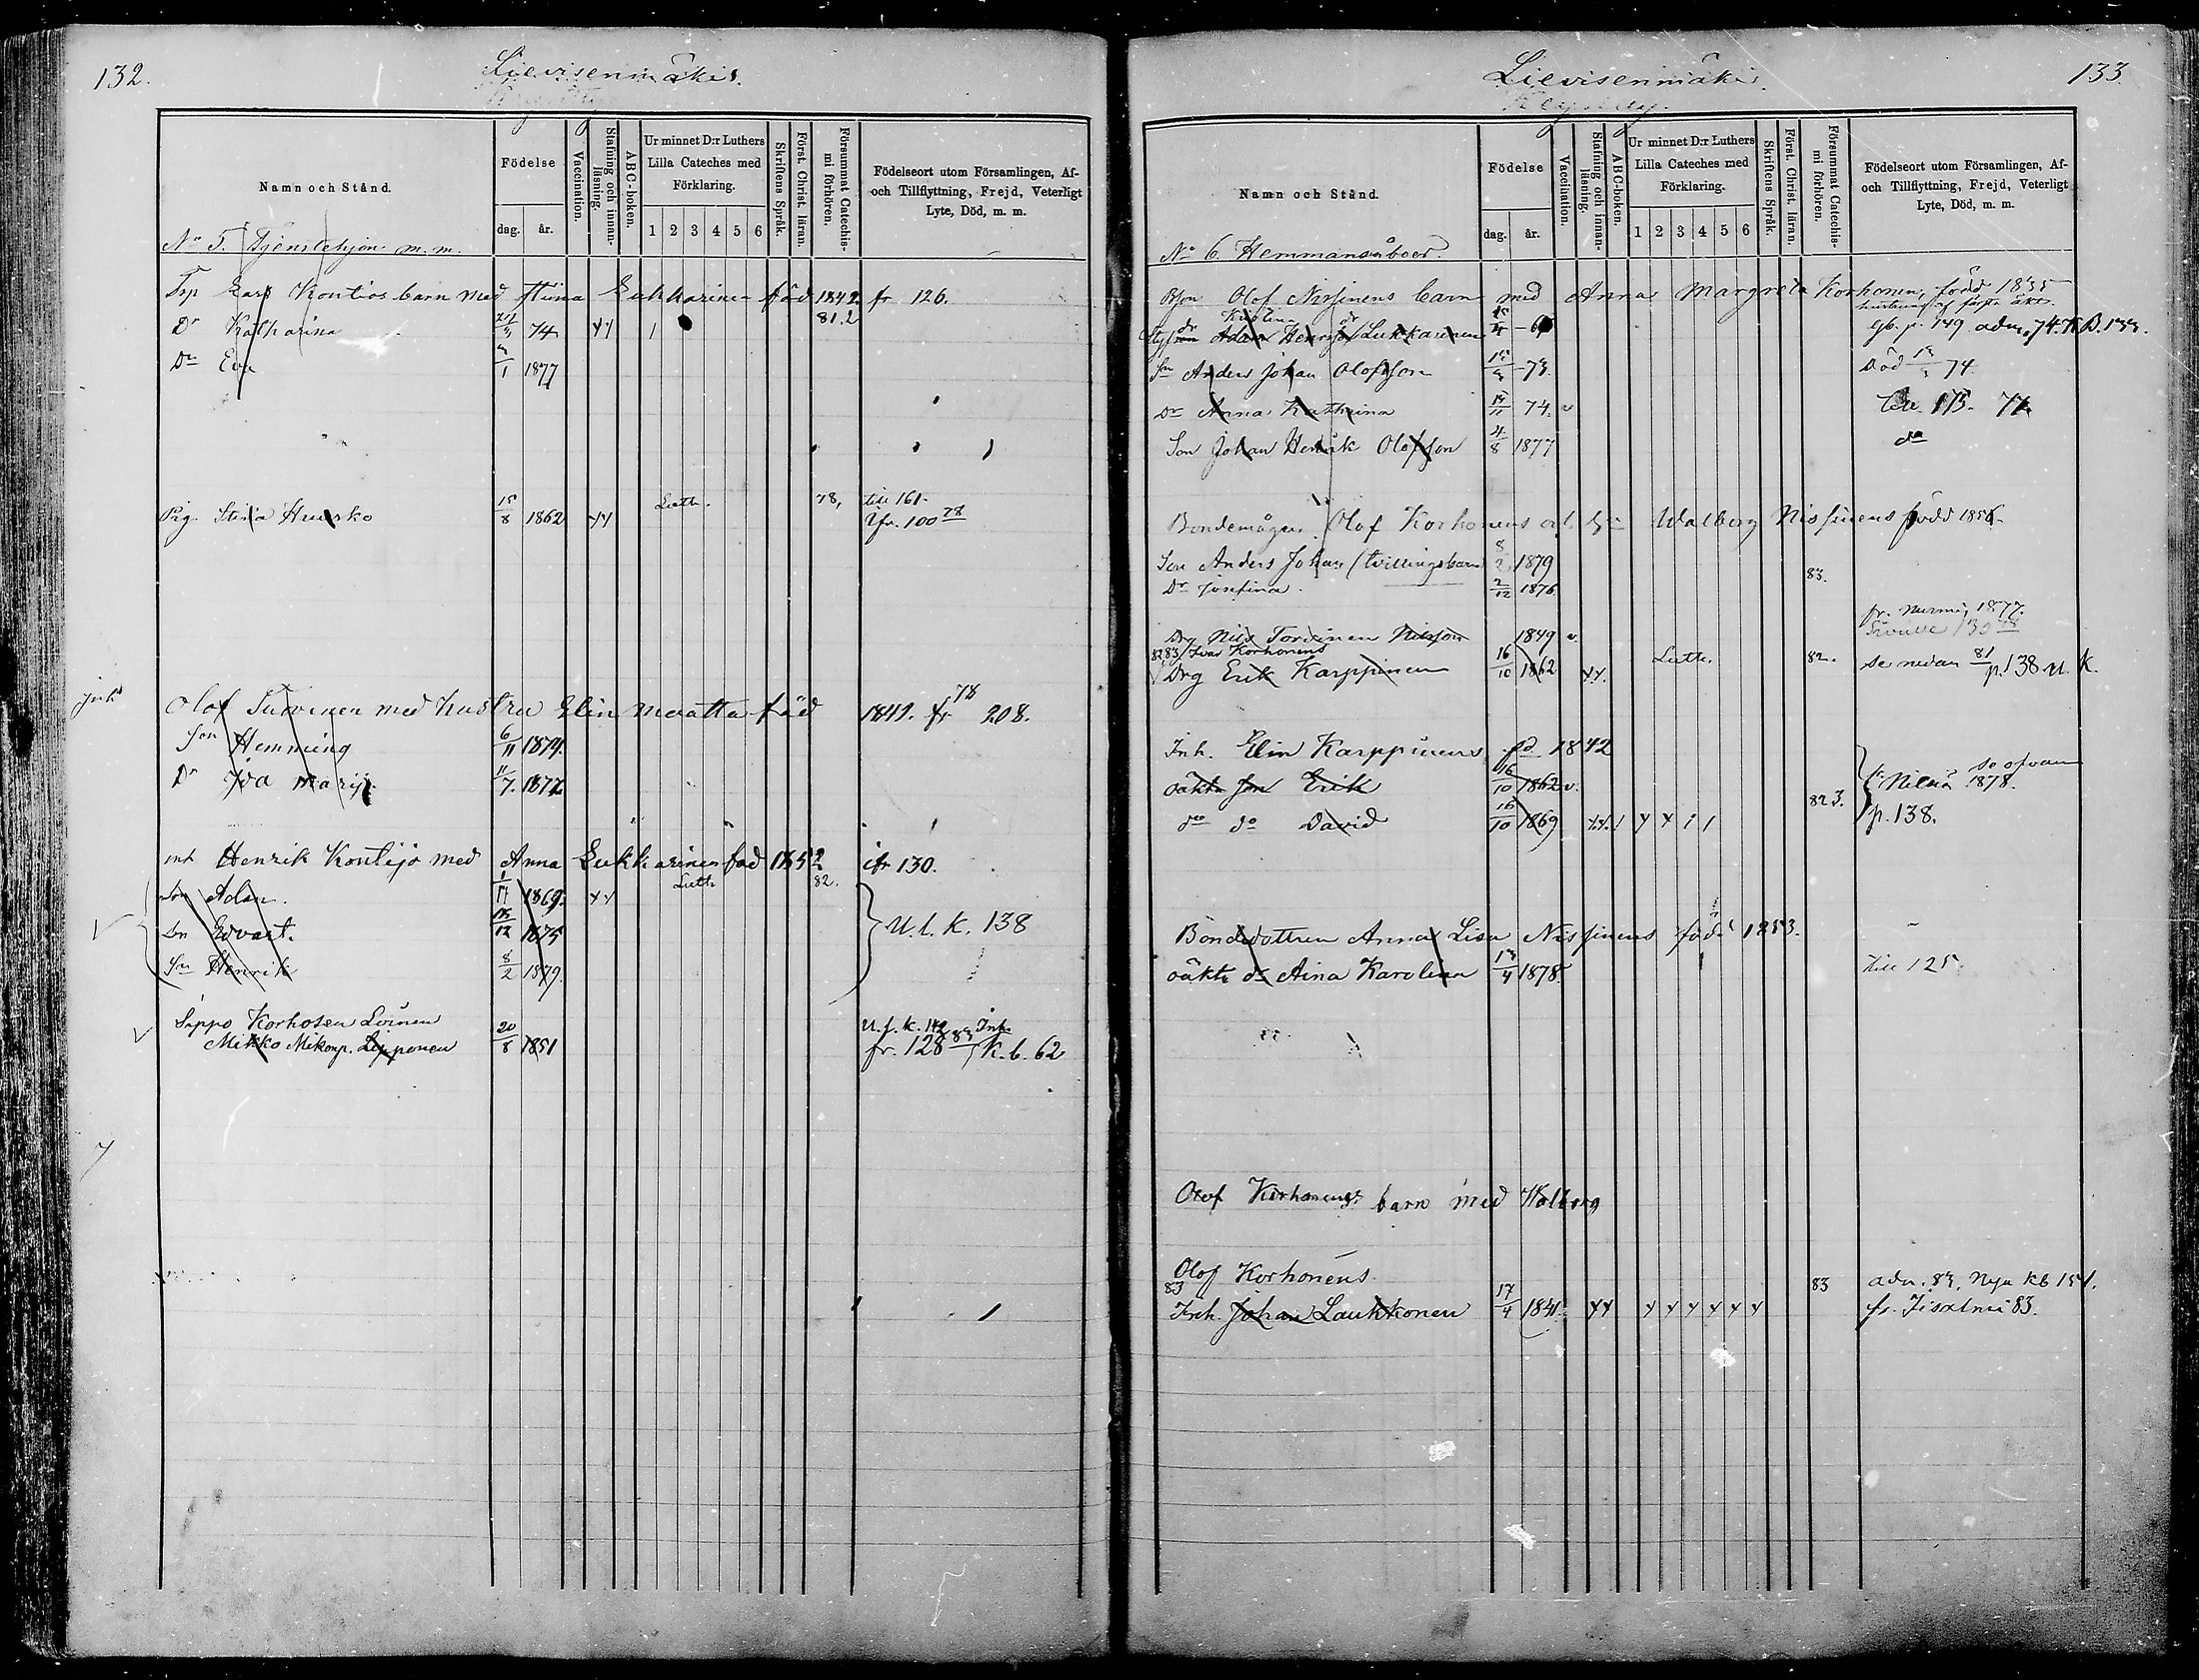 132.
Lievisenmäki.
Namn och Stånd.
Födelse
dag.
år.
Vaccination.
Stafning och innanläsning.
ABC-boken.
Ur minnet D:r Luthers
Lilla Cateches med
Förklaring.
1 2 3 4 5 6
Skriftens Språk.
Först. Christ. läran.
Försummat Catechismi förhören.
Födelseort utom Församlingen, Af-
och Tillflyttning, Frejd, Veterligt
Lyte, Död, m. m.
No 5. Tjenstehjon m. m.
Kontios barn med Stina Lukkarinen född 1842 fr 126.
81.2
Dr Katharina 74
Dr Eva 5/1 1877
Luth. 78, till 161.
Pig. Stina Husko 15/8 1862 100 78
Inh
Olof Turvinen med hustru Elin Moatta föd 1849. fr 78 208.
Son Hemming 6/11 1874.
Dr Ida Maria 11/7. 1877
inh Henrik Kontijo med Anna Lukkarinen föd 1852 ifr 130.
Luth 82.
Son Adam. 1869.
Son Edvart. 12 1875 U. l. k. 138
Sn Henrik 8/2 1879.
Seppo Korhosen Loinen U. l. k. 142 Inh.
Mikko Mikonp. Lipponen 20/8 1851 fr. 128 83 K. b. 62
133.
Lievisenmäki.
Namn och Stånd.
Födelse
dag.
år.
Vaccination.
Stafning och innanläsning.
ABC-boken.
Ur minnet D:r Luthers
Lilla Cateches med
Förklaring.
1 2 3 4 5 6
Skriftens Språk.
Först. Christ. läran.
Försummat Catechismi förhören.
Födelseort utom Församlingen, Af-
och Tillflyttning, Frejd, Veterligt
Lyte, Död, m. m.
No 6. Hemmansåboer.
Olof Nissinens barn med Anna Margreta Korhonen, född 1835
Adam Henrik Lukkarinen p. 149 adm. 74. K.B. 133.
Sn Anders Johan Olofsson 73. Död 74.
Dr Anna Kathrina 15/11 74. v 175. 77.
Son Johan Henrik Olofsson 4/8 1877 do
Bondemågen Olof Korhonens Walborg Nissinens född 1856.
Son Anders Johan (tvillingsbarn 8/2 1879
83.
Dr Josefina. 2/12 1876
fr. Nurmi, 1877.
Drg Nils Torvinen Nilsson 1849 v.
82 83 Ivar Korhonens
Drg Erik Karppinen 16/10 1862 Luth. 82. se nedan 81 p. 138 u. k.
Inh. Elin Karppinens fd 1842
oäkta son Erik 16/10 1862 v. se ofvan
fr. Nilsiä 1878.
do do David 16/10 1869 82 3. p. 138.
Bondedottren Anna Lisa Nissinens född 1853.
oäkta dr Aina Karolina 13/4 1878. till 125.
Olof Korhonens barn med Walborg
Olof Korhonens
83 83 adm. 83. Nya kb 151.
Inh. Johan Laukkonen 17/4 1841. fr. Iisalmi 83.